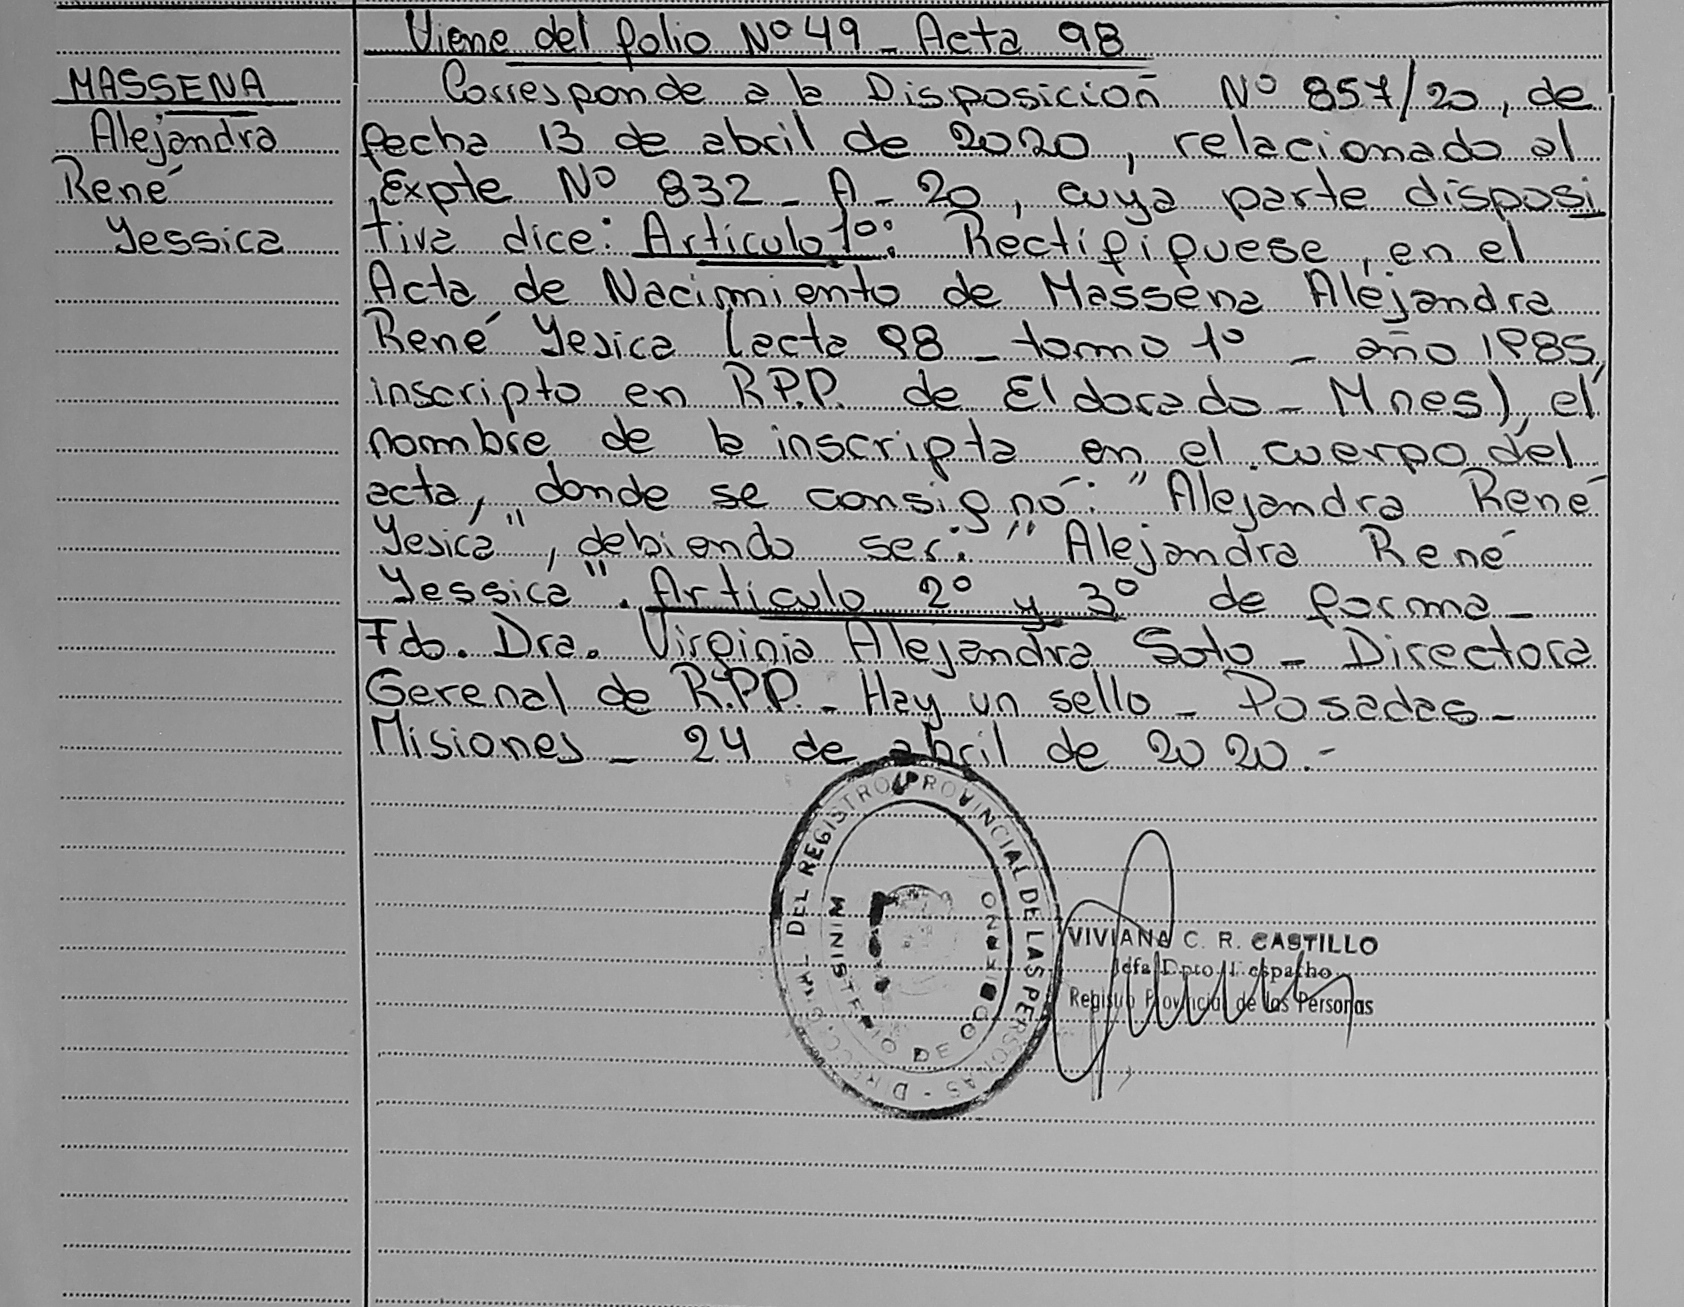 Viene del folio Nº 49 - Acta 98
MASSENA
Alejandra
René
Yessica
Corresponde a la Disposición Nº 857/20, de
fecha 13 de abril de 2020, relacionado al
Expte Nº 832 - A - 20, cuya parte disposi
tiva dice: Artículo 1º: Rectifíquese, en el
Acta de Nacimiento de Massena Alejandra
René Yesica (acta 98 - tomo 1º - año 1985,
inscripto en R.P.P. de Eldorado - Mnes), el
nombre de la inscripta en el cuerpo del
acta, donde se consignó: "Alejandra René
Yesica", debiendo ser: "Alejandra René
Yessica". Artículo 2º y 3º de forma -
Fdo. Dra. Virginia Alejandra Soto - Directora
Gerenal de R.P.P. - Hay un sello - Posadas -
Misiones - 24 de abril de 2020.-
DEL REGISTRO PROVINCIAL DE LAS PERSONAS
MINISTERIO DE GOBIERNO
VIVIANA C. R. CASTILLO
Jefa Dpto. Despacho
Registro Provincial de las Personas